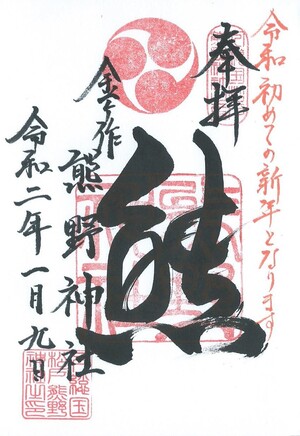 令和初めての新年となります
奉拝
熊
金作
熊野神社
令和二年一月九日